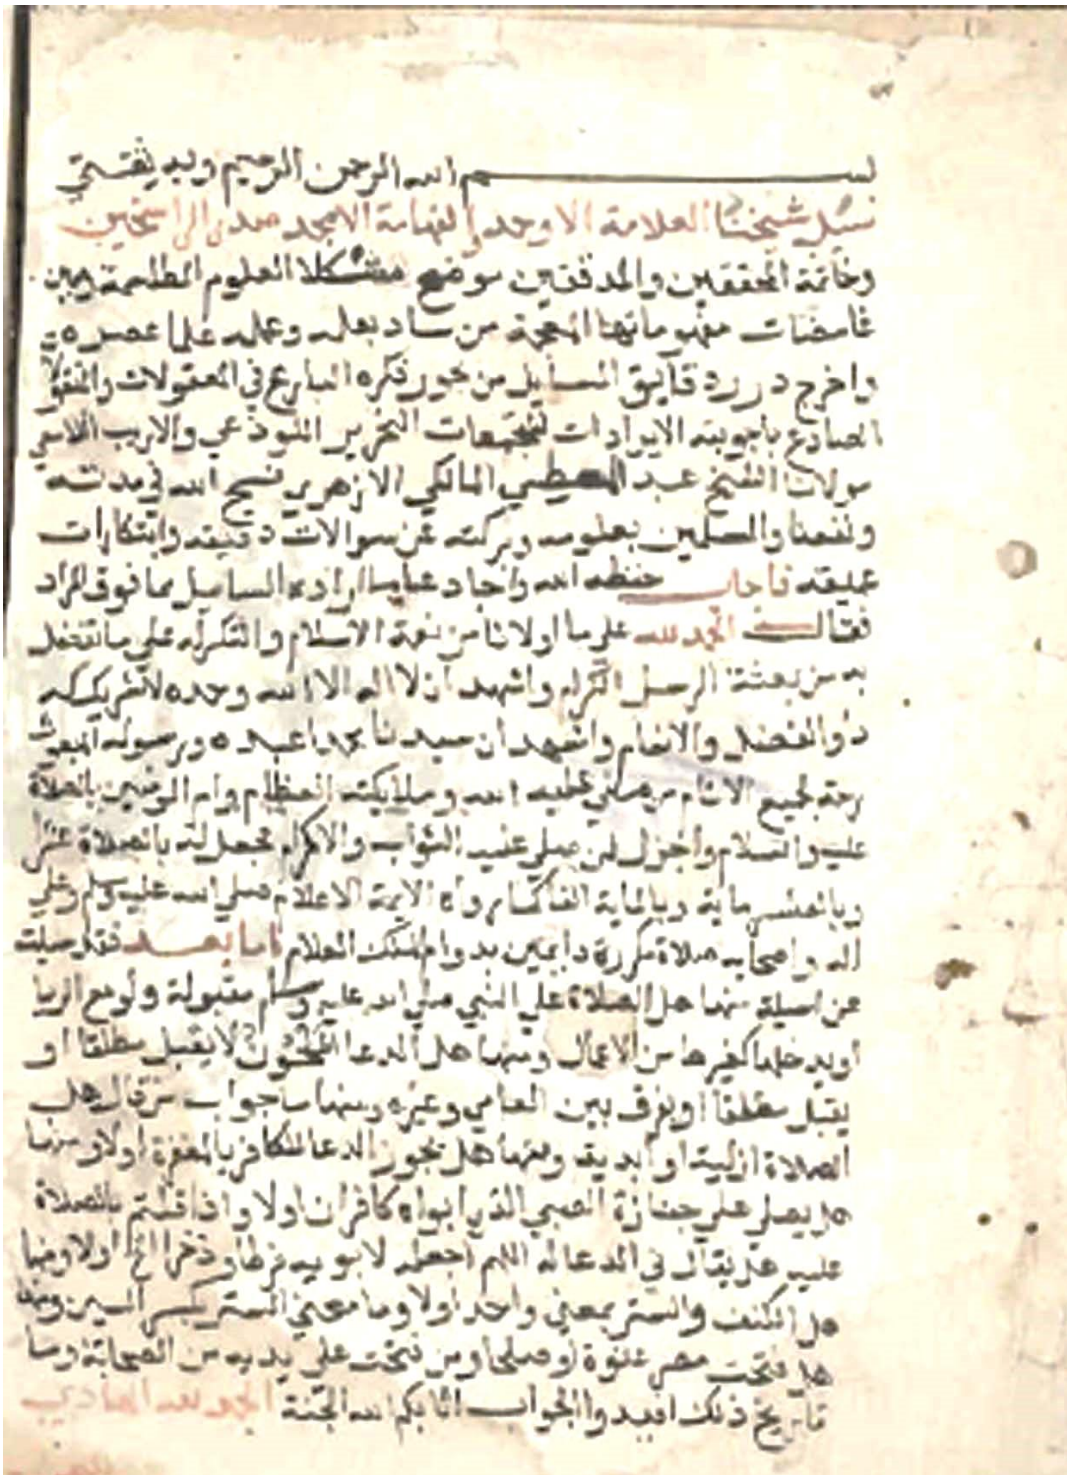 بســـــــــم الله الرحمن الرحيم وبه ثقتي
سئل شيخنا العلامة الاوحد والفهامة الامجد صدر الراسخين
وخاتمة المحققين والمدققين موضح مشكلا العلوم
غامضات المعجمة من ساد بعلمه وعمله علما عصره
واخرج درر دقايق المسايل من بحور فكره البارع في المعقولات والمنقولا
الصادع باجوبته الايرادات النحرير اللوذعي والاريب الالمعي
مولانا الشيخ عبد المعطي المالكي الازهري فسح الله في مدته
ونفعنا والمسلمين بعلومه وبركته عن سوالات دقيقه وابتكارات
عميقه فاجاب حفظه الله واجاد عما اراده السايل بما فوق المراد
فقال الحمد لله على ما اولانا من نعمة الاسلام والشكر له على ما تفضل
به من بعثة الرسل الكرام واشهد ان لا اله الا الله وحده لا شريك له
ذو الفضل والانعام واشهد ان سيدنا محمدا عبده ورسوله المبعوث
رحمة لجميع الانام من صلى عليه الله وملايكته العظام وامر المومنين بالصلاة
عليه والسلام واجزل لمن صلى عليه الثواب والاكرام فجعل له بالصلاة عشرا
وبالعشر ماية وبالماية الفا كما رواه الايمة الاعلام صلى الله عليه وسلم وعلى
اله واصحابه صلاة مكررة دايمين بدوام الملك العلام اما بعد فقد سيلت
عن اسيلة منها هل الصلاة على النبي صلى الله عليه وسلم مقبولة ولو مع الريا
او يدخلها كغيرها من الاعمال ومنها هل الدعا الملحون لا يقبل مطلقا او
يقبل مطلقا او يفرق بين العامي وغيره ومنها ما جواب من قال هل
الصلاة ازلية او ابدية ومنها هل يجوز الدعا للكافر بالمغفرة اولا ومنها
هل يصلى على جنازة الصبي الذي ابواه كافران اولا واذا قلتم بالصلاة
عليه هل يقال في الدعا له اللهم اجعله لابويه فرطا وذخرا الخ اولا ومنها
هل الكنف والستر بمعنى واحد اولا وما معنى الستر بكسر السين ومنها
هل فتحت مصر عنوة او صلحا ومن فتحت على يديه من الصحابة وما
تاريخ ذلك افيدوا الجواب اثابكم الله الجنة الحمد لله الهادي